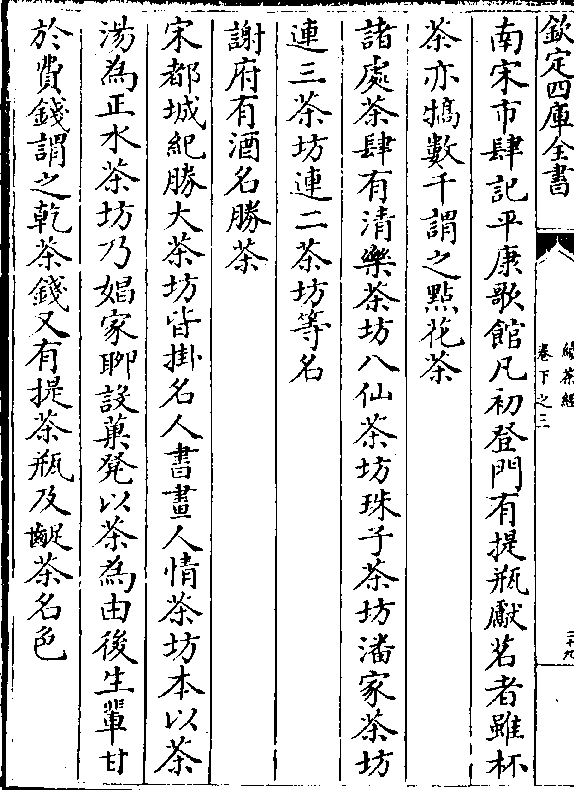 欽定四庫全書
續茶經
卷下之三
二十九
南宋市肆記平康歌館凡初登門有提瓶獻茗者雖杯
茶亦犒數千謂之點花茶
諸處茶肆有清樂茶坊八仙茶坊珠子茶坊潘家茶坊
連三茶坊連二茶坊等名
謝府有酒名勝茶
宋都城紀勝大茶坊皆掛名人書畫人情茶坊本以茶
湯為正水茶坊乃娼家聊設菓凳以茶為由後生輩甘
於費錢謂之乾茶錢又有提茶瓶及齪茶名色